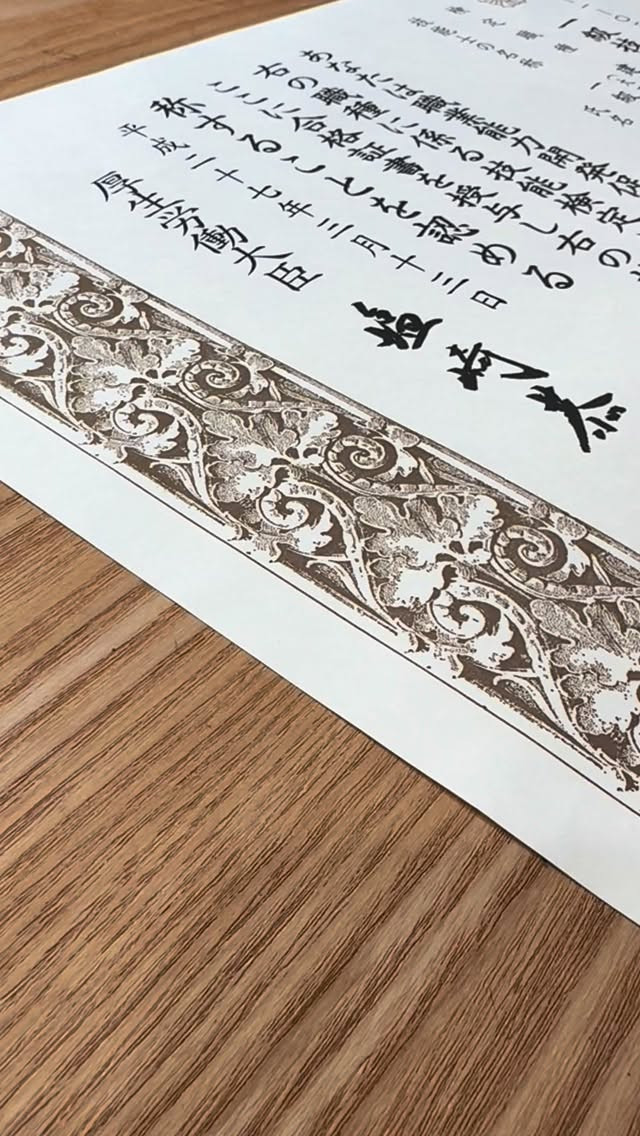 一級技
検定職種
技能士の名称
あなたは職業能力開発促
右の職種に係る技能検定
ここに合格証書を授与し右の
称することを認める
平成二十七年三月十三日
厚生労働大臣
塩崎恭